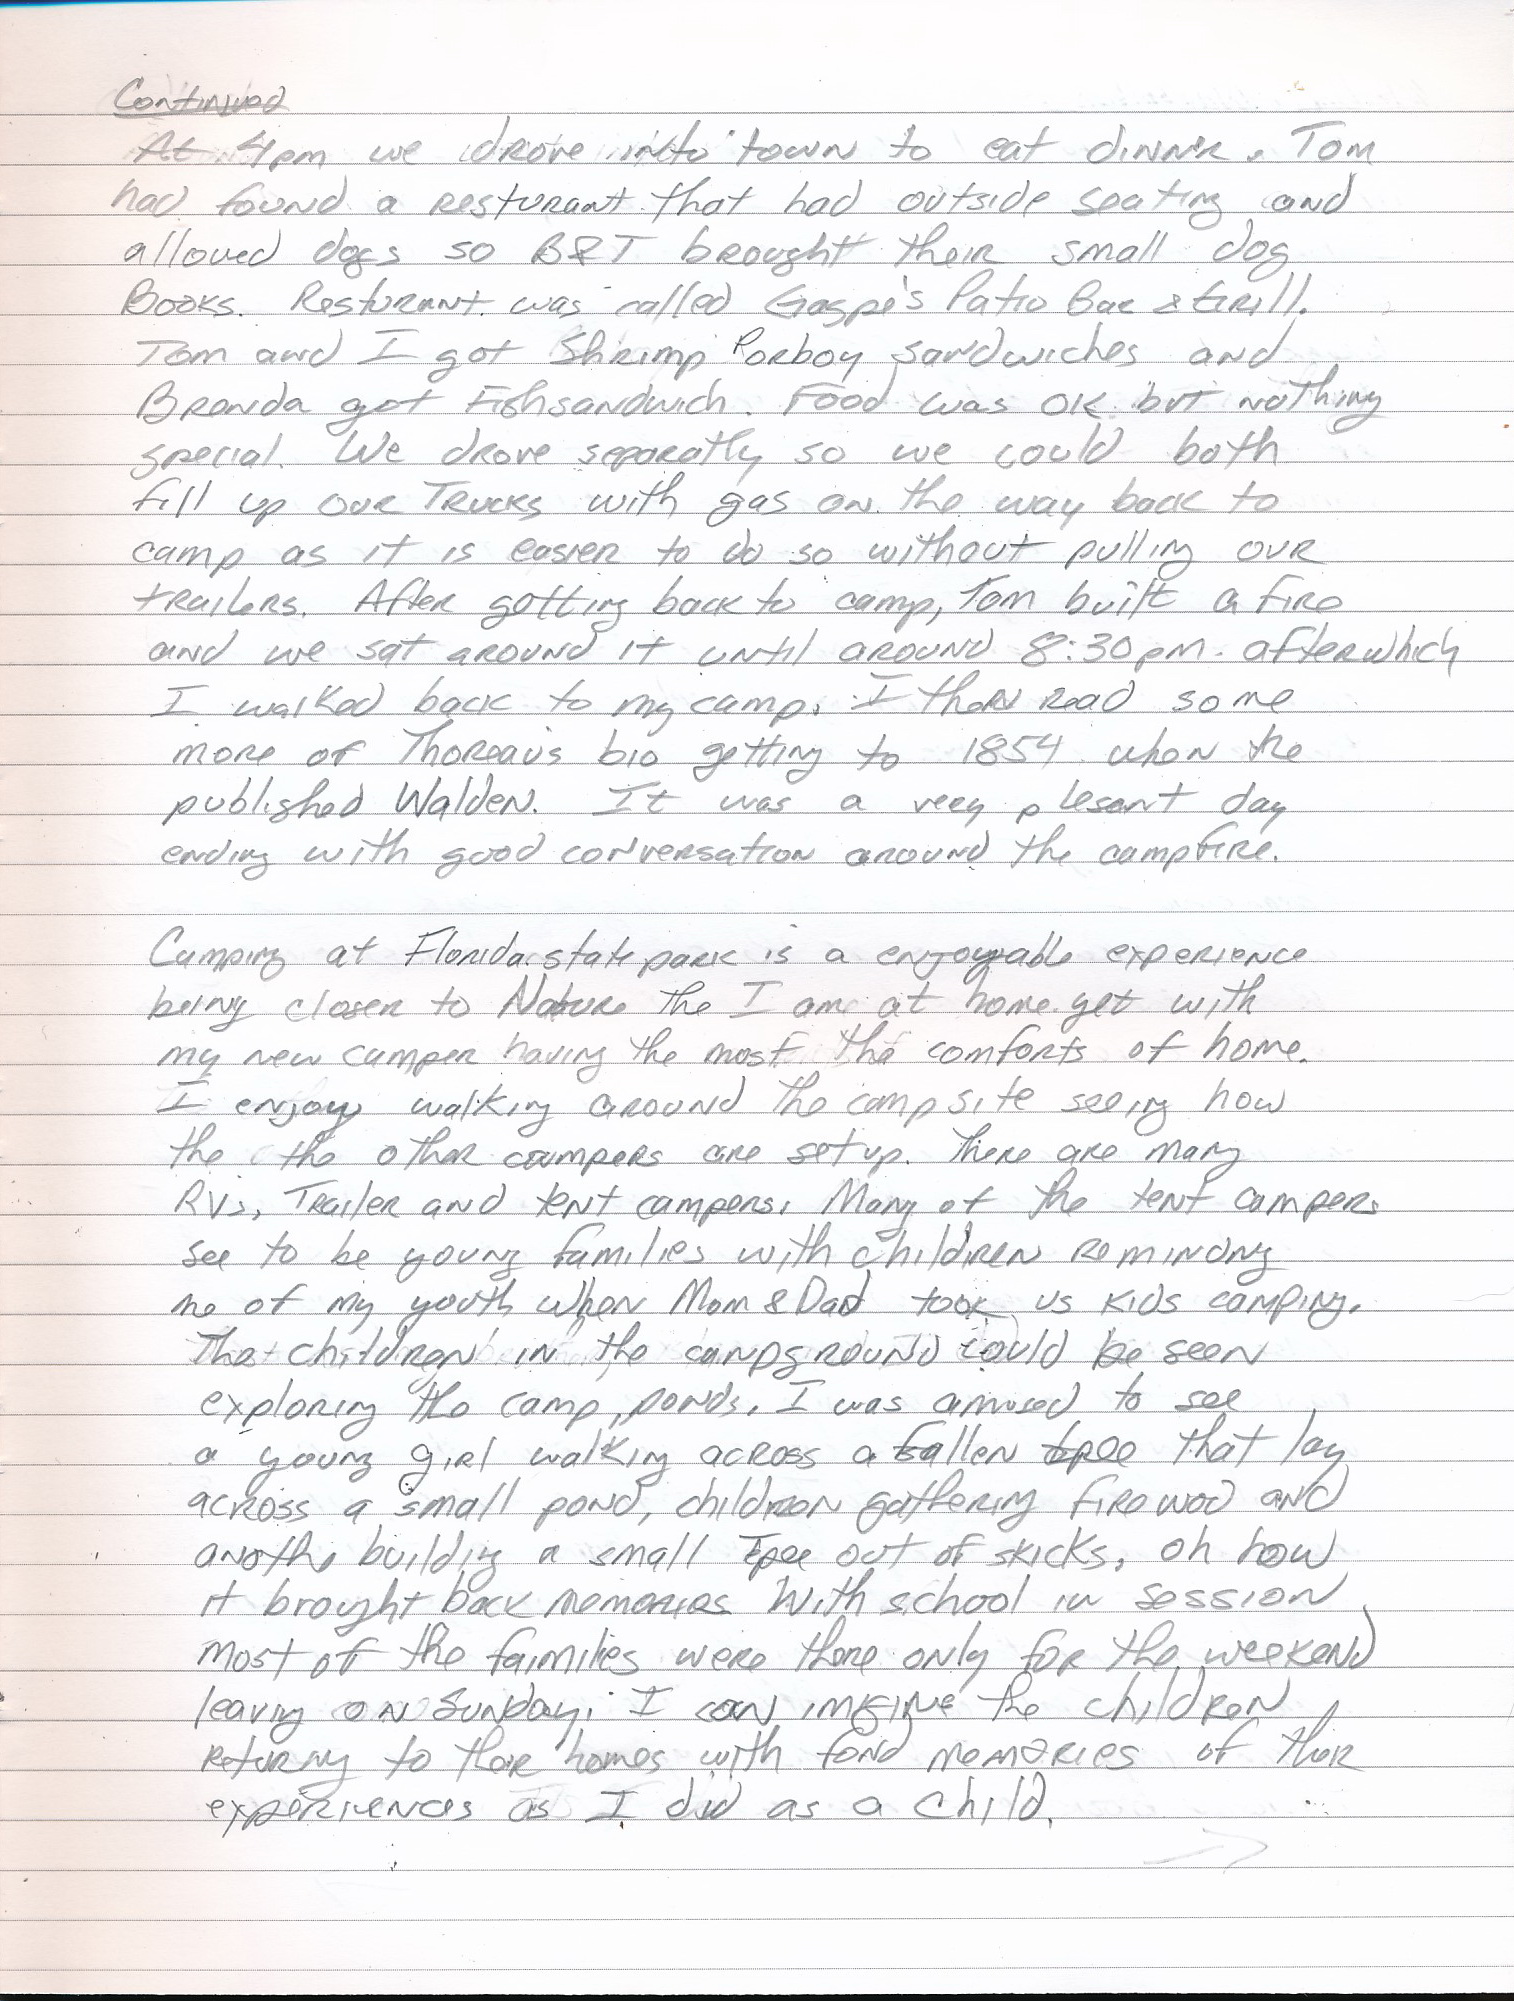 Continued
At 4pm we drove into town to eat dinner. Tom
had found a resturant that had outside seating and
allowed dogs so B&T brought their small dog
Books. Resturant was called Gaspe's Patio Bar & Grill.
Tom and I got Shrimp Porboy sandwiches and
Brenda got Fishsandwich. Food was OK but nothing
special. We drove separatly so we could both
fill up our Trucks with gas on the way back to
camp as it is easier to do so without pulling our
trailers. After getting back to camp, Tom built a fire
and we sat around it until around 8:30pm. afterwhich
I walked back to my camp. I then read some
more of Thoreau's bio getting to 1854 when he
published Walden. It was a very plesant day
ending with good conversation around the campfire.
Camping at Florida state park is a enjoyable experience
being closer to Nature the I am at home yet with
my new camper having the most the comforts of home.
I enjoy walking around the campsite seeing how
the the other campers are setup. There are many
RVs, Trailer and tent campers. Many of the tent campers
see to be young families with children reminding
me of my youth when Mom & Dad took us kids camping.
The children in the campground could be seen
exploring the camp, ponds. I was amused to see
a young girl walking across a fallen tree that lay
across a small pond, children gathering firewood and
anothe building a small Tpee out of skicks, oh how
it brought back memories With school in session
most of the faimilies were there only for the weekend
leaving on Sunday. I can imagine the children
returny to their homes with fond memories of their
experiences as I did as a child.